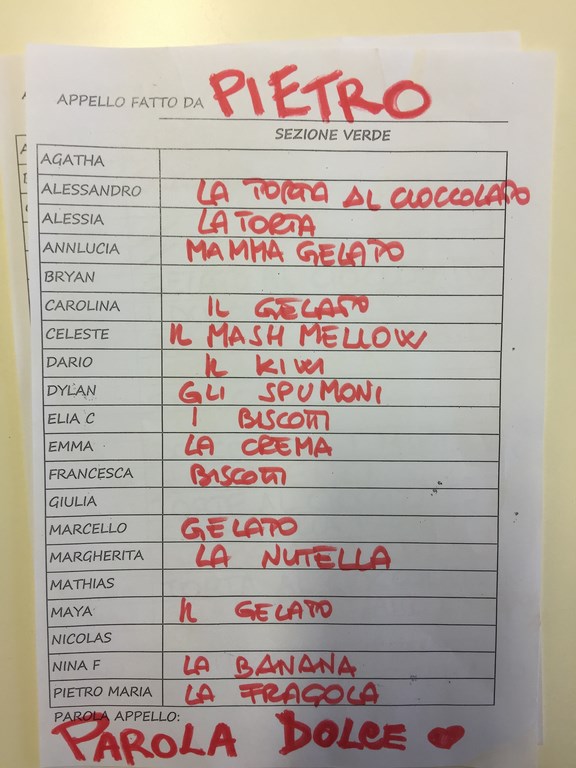 APPELLO FATTO DA PIETRO
SEZIONE VERDE
AGATHA
ALESSANDRO LA TORTA AL CIOCCOLATO
ALESSIA LA TORTA
ANNLUCIA MAMMA GELATO
BRYAN
CAROLINA IL GELATO
CELESTE IL MASH MELLOW
DARIO IL KIWI
DYLAN GLI SPUMONI
ELIA C I BISCOTTI
EMMA LA CREMA
FRANCESCA BISCOTTI
GIULIA
MARCELLO GELATO
MARGHERITA LA NUTELLA
MATHIAS
MAYA IL GELATO
NICOLAS
NINA F LA BANANA
PIETRO MARIA LA FRAGOLA
PAROLA APPELLO:
PAROLA DOLCE